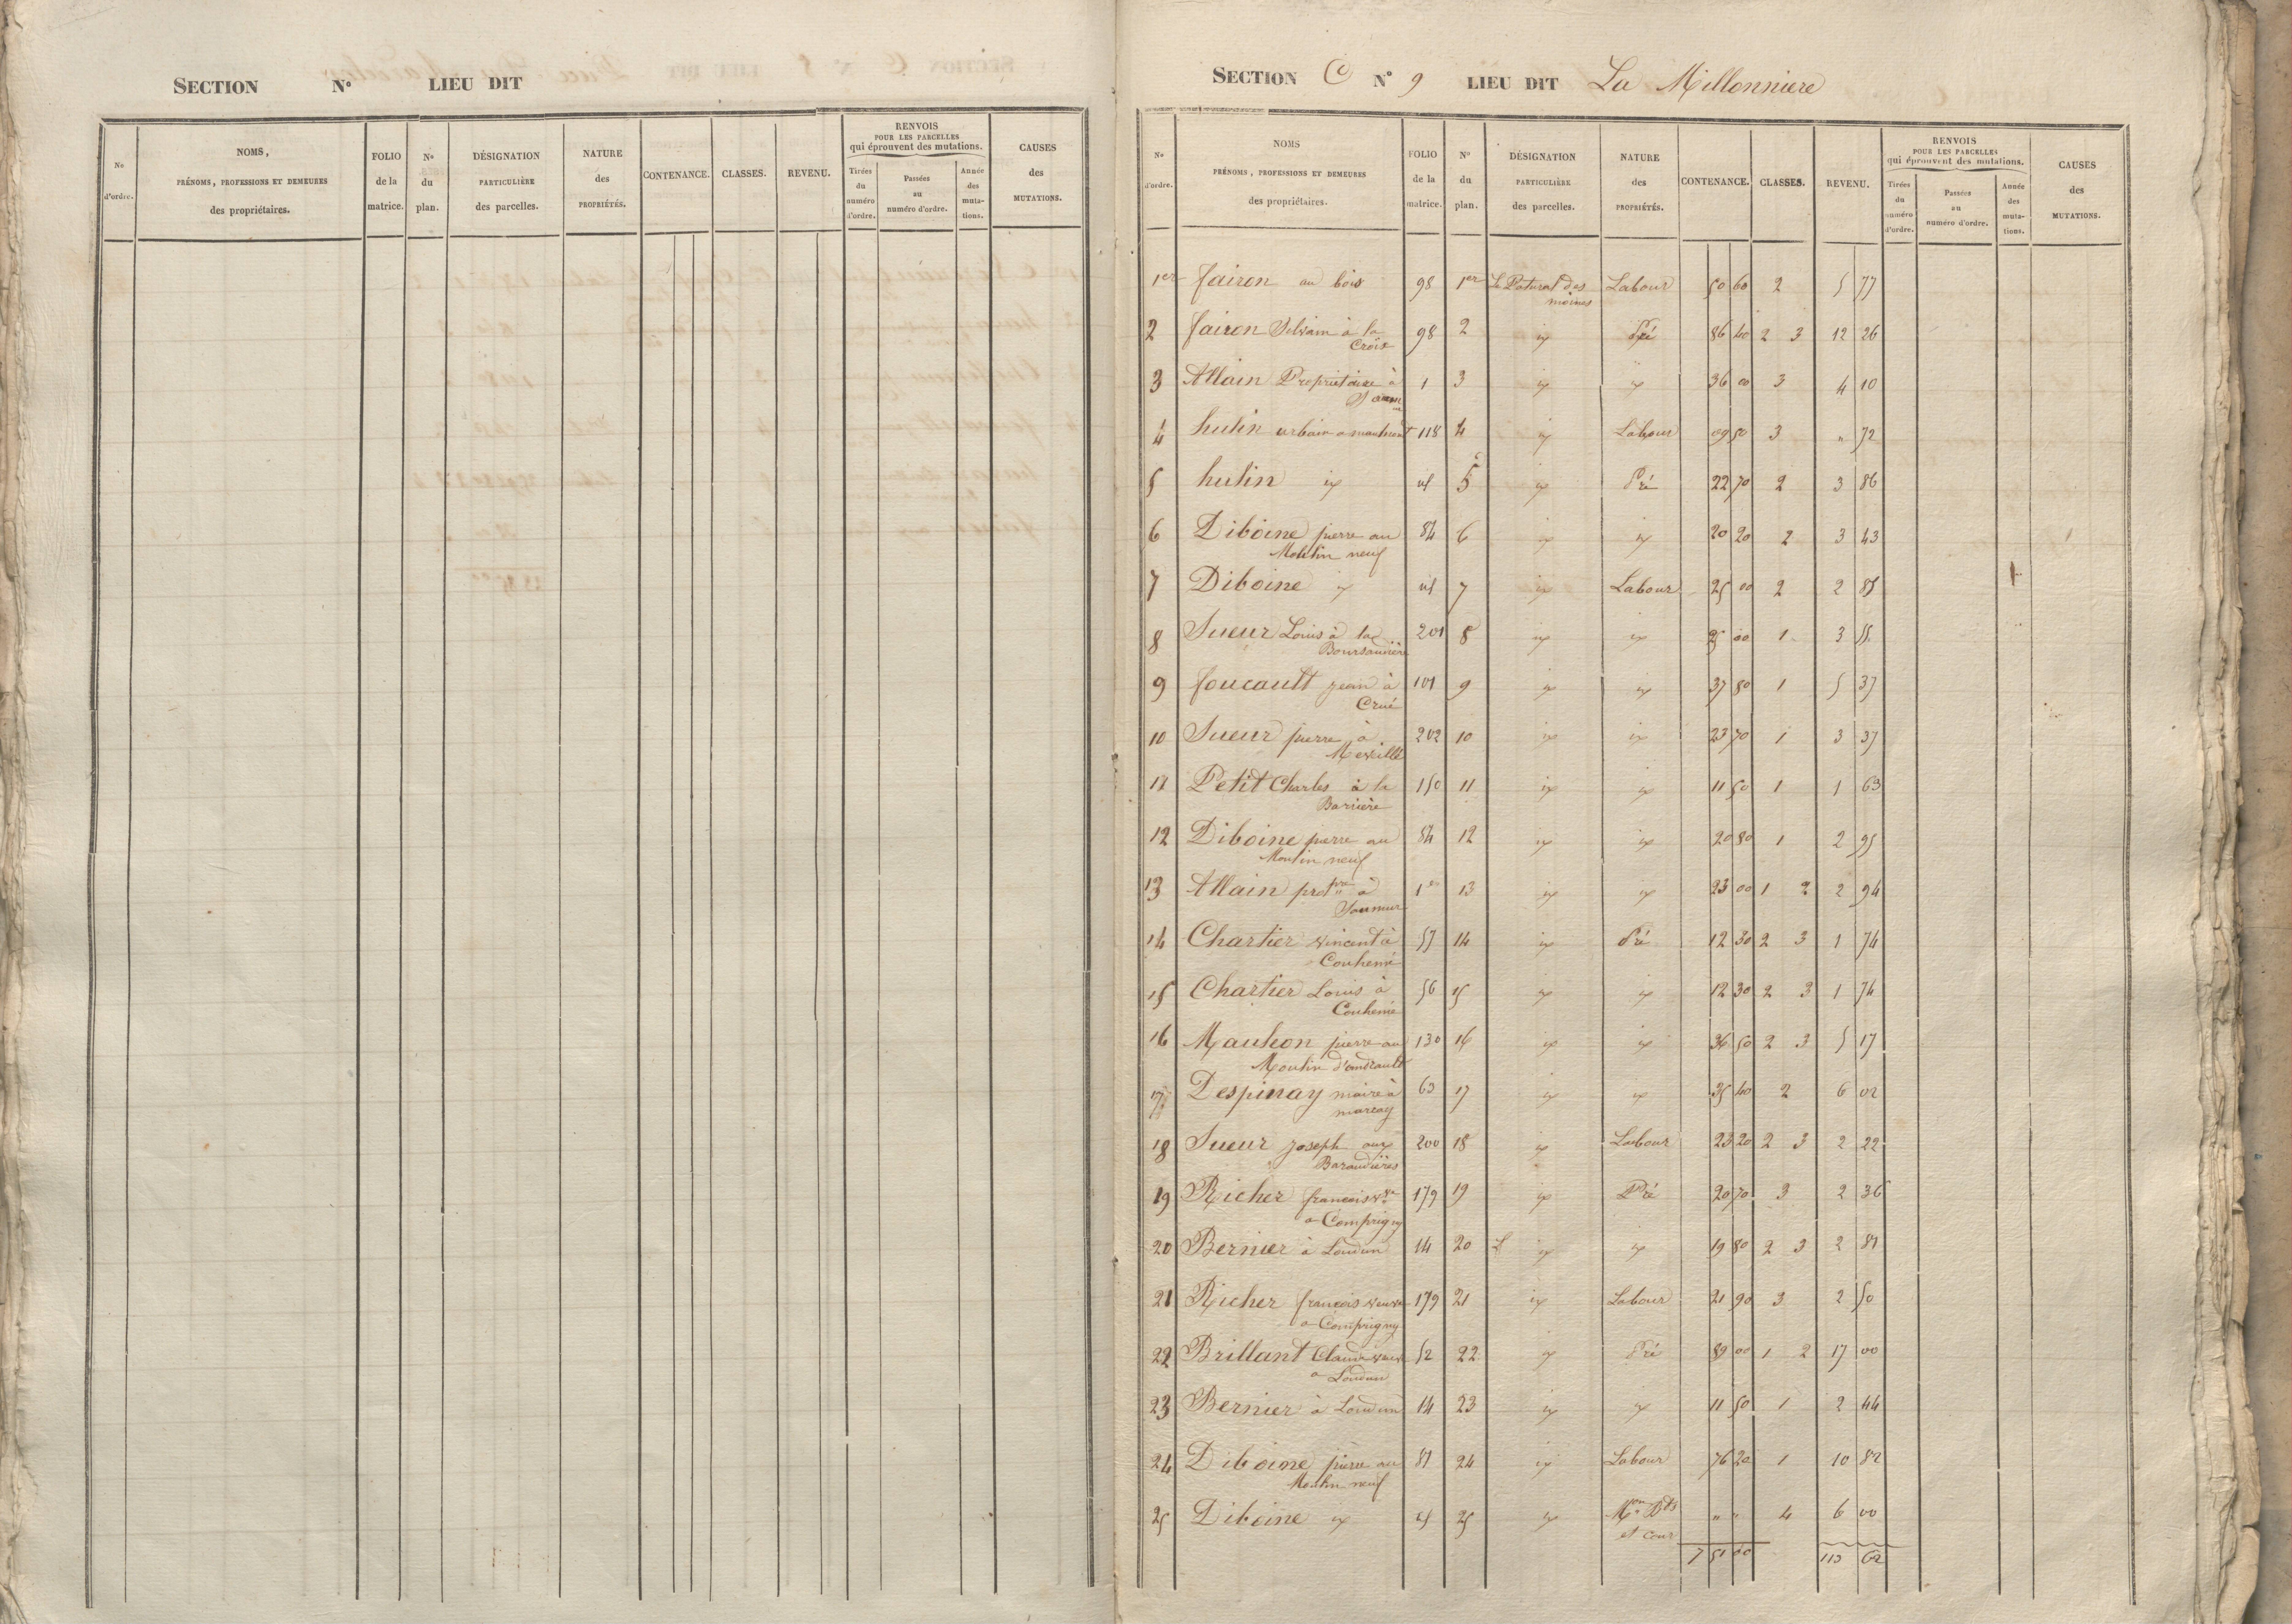 SECTION N° LIEU DIT
N° d'ordre. NOMS, PRÉNOMS, PROFESSIONS ET DEMEURES des propriétaires. FOLIO de la matrice. N° du plan. DÉSIGNATION PARTICULIÈRE des parcelles. NATURE des PROPRIÉTÉS. CONTENANCE. CLASSES. REVENU. RENVOIS POUR LES PARCELLES qui éprouvent des mutations. Tirées du numéro d'ordre. Passées au numéro d'ordre. Année des mutations. CAUSES des MUTATIONS.
SECTION C N° 9 LIEU DIT La Millonniere
N° d'ordre. NOMS PRÉNOMS, PROFESSIONS ET DEMEURES des propriétaires. FOLIO de la matrice. N° du plan. DÉSIGNATION PARTICULIÈRE des parcelles. NATURE des PROPRIÉTÉS. CONTENANCE. CLASSES. REVENU. RENVOIS POUR LES PARCELLES qui éprouvent des mutations. Tirées du numéro d'ordre. Passées au numéro d'ordre. Année des mutations. CAUSES des MUTATIONS.
1er fairon au bois 98 1er Le Patural des Labour 50 60 2 5 77
moines
2 fairon Silvain à la 98 2 id Pré 86 40 2 3 12 26
Croix
3 Allain Propriétaire à 1 3 id id 36 00 3 4 10
4 hulin urbain 118 4 id Labour 09 50 3 " 72
5 hulin id id 5 id Pré 22 70 2 3 86
6 Diboine pierre au 84 6 id id 20 20 2 3 43
Moulin neuf
7 Diboine id id 7 id Labour 25 00 2 2 85
8 Sueur Louis à la 201 8 id id 25 00 1 3 55
Boursaudière
9 foucault jean à 101 9 id id 37 80 1 5 37
Crué
10 Sueur pierre à 202 10 id id 23 70 1 3 37
11 Petit Charles à la 150 11 id id 11 50 1 1 63
Barrière
12 Diboine pierre au 84 12 id id 20 80 1 2 95
Moulin neuf
13 Allain à 1er 13 id id 23 00 1 2 2 94
Saumur
14 Chartier vincent à 57 14 id Pré 12 30 2 3 1 74
Couhemé
15 Chartier Louis à 56 15 id id 12 30 2 3 1 74
Couhemé
16 Mauleon pierre au 130 16 id id 36 50 2 3 5 17
Moulin d'andrault
17 Despinay maire à 63 17 id id 35 40 2 6 02
marcay
18 Sueur joseph aux 200 18 id Labour 23 20 2 3 2 22
Baraudières
19 Richer francois vve 179 19 id Pré 20 70 3 2 36
a Comprigny
20 Bernier à Loudun 14 20 id id 19 80 2 3 2 81
21 Richer francois veuve 179 21 id Labour 21 90 3 2 50
a Comprigny
22 Brillant Claude veuve 52 22 id Pré 89 00 1 2 17 00
a Loudun
23 Bernier à Loudun 14 23 id id 11 50 1 2 44
24 Diboine pierre au 24 id Labour 76 20 1 10 82
Moulin neuf
25 Diboine id id 25 id Mon Bts " " 4 6 00
et cour
7 51 00 113 62